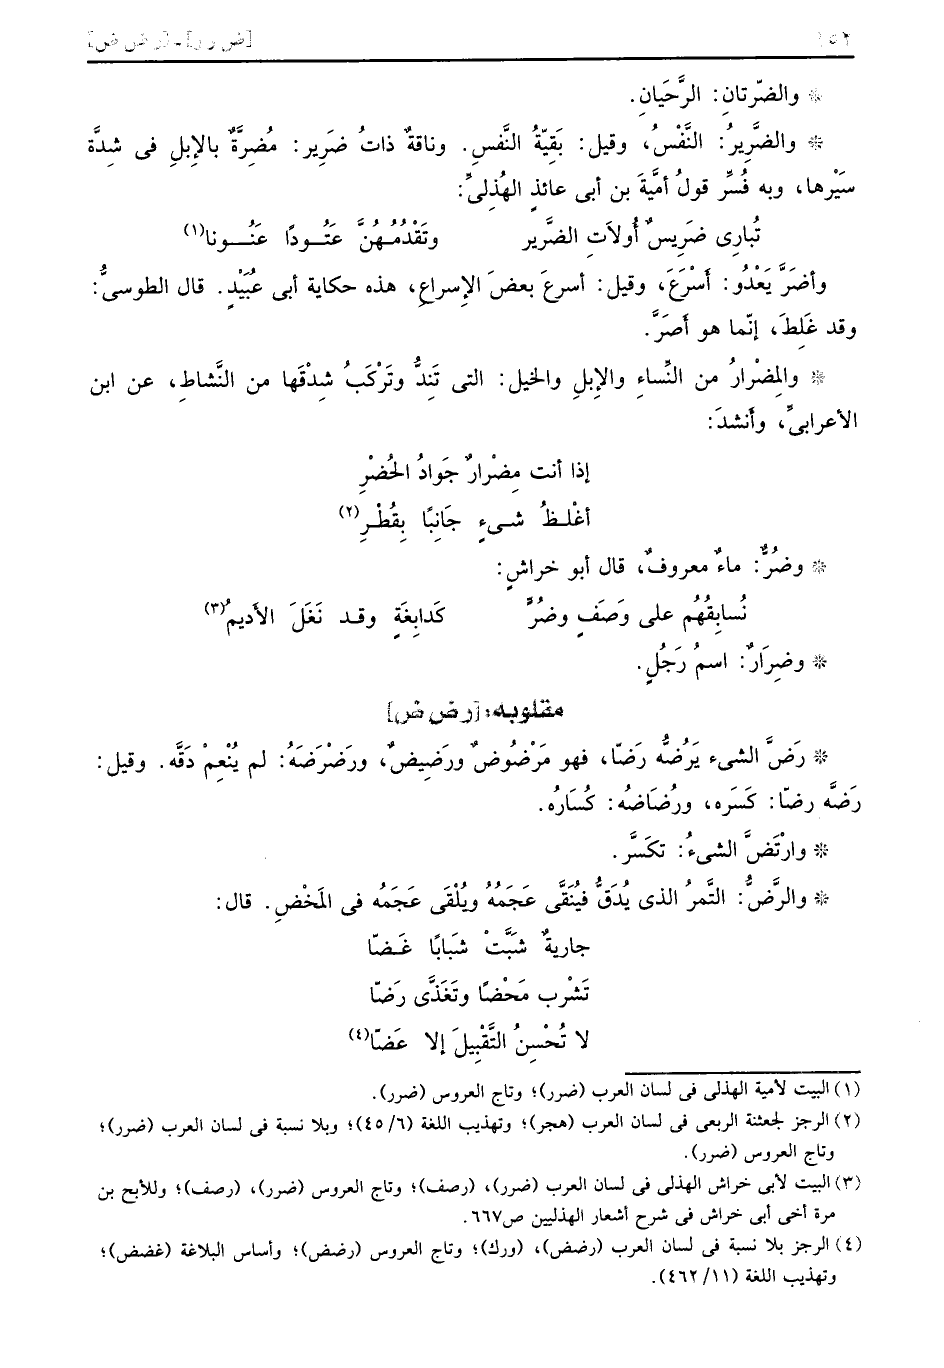 ١٥٢ [ض ر ر] ـ [ر ض ض]
* والضّرتان: الرَّحَيان.
* والضَّرِيرُ: النَّفْسُ، وقيل: بَقِيّةُ النَّفسِ. وناقةٌ ذاتُ ضَرِير: مُضِرَّةٌ بالإبلِ فى شِدَّة
سَيْرها، وبه فُسِّر قولُ أمَيَّةَ بن أبى عائذٍ الهُذلِىِّ:
تُبارِى ضَرِيسٌ أُولاَتِ الضَّرير وتَقْدُمُهُنَّ عَتُودًا عَنُونا(١)
وأضَرَّ يَعْدُو: أَسْرَعَ، وقيل: أسرعَ بعضَ الإسراعِ، هذه حكاية أبى عُبَيْدٍ. قال الطوسىُّ:
وقد غَلِطَ، إنّما هو أصَرَّ.
* والمِضْرارُ من النِّساءِ والإبلِ والخيل: التى تَنِدُّ وتَرْكَبُ شدْقَها من النَّشاطِ، عن ابن
الأعرابىِّ، وأنشدَ:
إذا أنت مِضْرارٌ جَوادُ الحُضْرِ
أغْلظُ شىءٍ جَانِبًا بِقُطْرِ(٢)
* وضُرٌّ: ماءٌ معروفٌ، قال أبو خراشٍ:
نُسابِقُهُم على وَصَفٍ وضُرٍّ كَدابِغَةٍ وقد نَغَلَ الأديمُ(٣)
* وضِرَارٌ: اسمُ رَجُلٍ.
مقلوبه: [رض ض]
* رَضَّ الشىء يَرُضُّه رَضّا، فهو مَرْضُوضٌ ورَضِيضٌ، ورَضْرَضَهُ: لم يُنْعِمْ دَقَّه. وقيل:
رَضَّه رضّا: كَسَره، ورُضَاضُه: كُسَارُه.
* وارْتَضَّ الشىءُ: تكَسَّر.
* والرَّضُّ: التَّمرُ الذى يُدَقُّ فيُنَقَّى عَجَمُهُ ويُلْقَى عَجَمُه فى المَخْضِ. قال:
جاريةٌ شَبَّتْ شَبَابًا غَضّا
تَشْرب مَحْضًا وتَغَذَّى رَضّا
لا تُحْسِنُ التَّقْبِيلَ إلا عَضّا(٤)
(١) البيت لأمية الهذلى فى لسان العرب (ضرر)؛ وتاج العروس (ضرر).
(٢) الرجز لجعثنة الربعى فى لسان العرب (هجر)؛ وتهذيب اللغة (٤٥/٦)؛ وبلا نسبة فى لسان العرب (ضرر)؛
وتاج العروس (ضرر).
(٣) البيت لأبى خراش الهذلى فى لسان العرب (ضرر)، (رصف)؛ وتاج العروس (ضرر)، (رصف)؛ وللأبح بن
مرة أخى أبى خراش فى شرح أشعار الهذليين ص٦٦٧.
(٤) الرجز بلا نسبة فى لسان العرب (رضض)، (ورك)؛ وتاج العروس (رضض)؛ وأساس البلاغة (غضض)؛
وتهذيب اللغة (٤٦٢/١١).